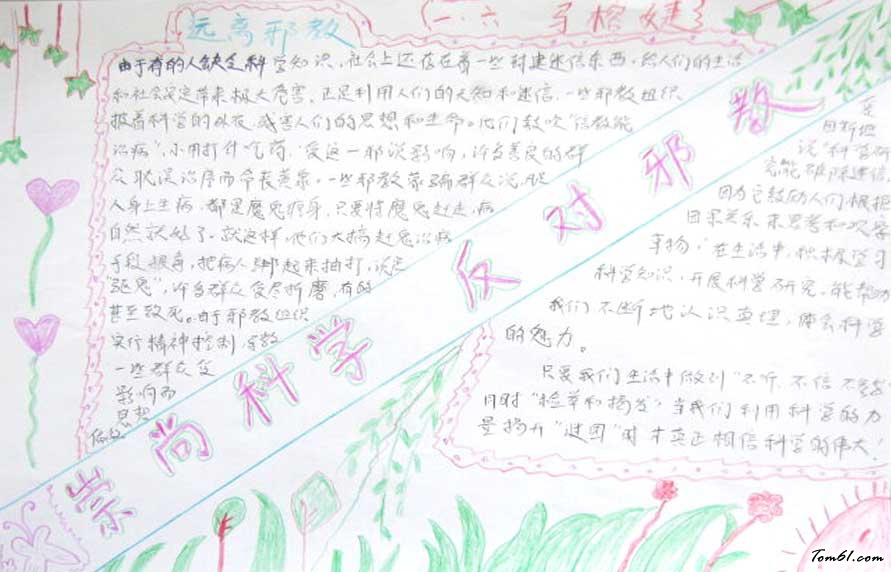 远离邪教
一·六
由于有的人缺乏科学知识，社会上还存在着一些封建迷信东西，给人们的生活
和社会安定带来极大危害，正是利用人们的无知和迷信，一些邪教组织
披着科学的外衣，残害人们的思想和生命。他们鼓吹“信教能
治病”，不用打针吃药，受这一邪说影响，许多善良的群
众耽误治疗而命丧黄泉。一些邪教蒙骗群众说，
人身上生病，都是魔鬼缠身，只要将魔鬼赶走，病
自然就好了。就这样，他们大搞赶鬼治病
手段狠毒，把病人绑起来抽打，说是
“驱鬼”，许多群众受尽折磨，有的
甚至致死。由于邪教组织
实行精神控制，导致
一些群众受
影响而
思想
崇尚科学 反对邪教
因斯坦
说“科学研
究能破除迷信，
因为它鼓励人们根据
因果关系来思考和观察
事物，”在生活中，积极学习
科学知识，开展科学研究，能帮助
我们不断地认识真理，体会科学
的魅力。
只要我们生活中做到“不听、不信、不
同时“检举和揭发”，当我们利用科学的力
量揭开“谜团”时才真正相信科学的伟大！
Tom61.com